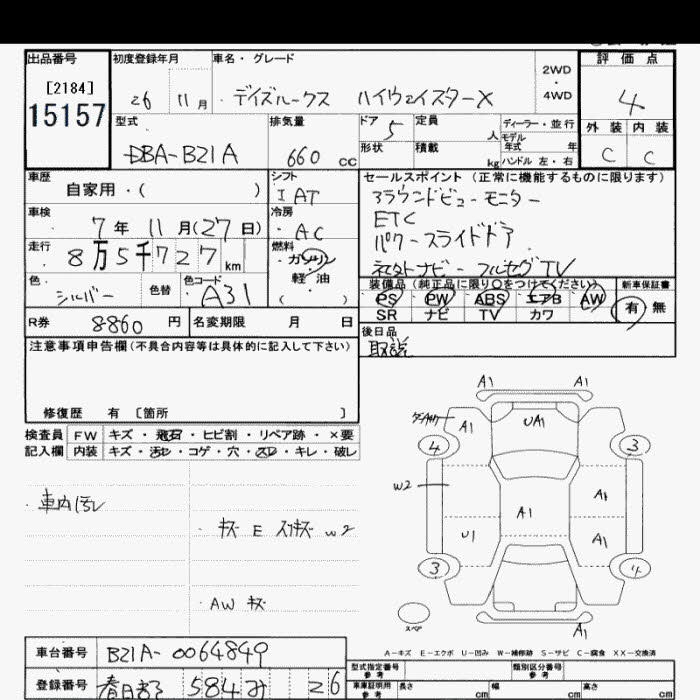 出品番号 初度登録年月 車名・グレード 評価点
[2184]
15157
26 11月 デイズルークス ハイウェイスターX
2WD
・
4WD
4
型式 排気量 ドア 定員 ディーラー・並行 外装 内装
DBA-B21A 660cc 5 人 モデル年式 年 C C
形状 積載 kg ハンドル 左・右
車歴 シフト セールスポイント(正常に機能するものに限ります)
自家用・( ) IAT アラウンドビューモニター
車検 冷房 ETC
7年11月(27日) AC パワースライドドア
走行 燃料
8万5千727km ガソリン
軽・油
( )
ナビ-フルセグTV
色 色替 色コード 装備品(純正品に限り○をつけてください) 新車保証書
シルバー A31 PS PW ABS エアB AW 有 無
SR ナビ TV カワ
R券 8860円 名変期限 月 日 後日品
取説
注意事項申告欄(不具合内容等は具体的に記入して下さい)
修復歴 有 [箇所 ]
検査員 FW キズ・飛石・ヒビ割・リペア跡・×要
記入欄 内装 キズ・汚レ・コゲ・穴・スレ・キレ・破レ
・車内汚レ
・キズ E スリキズ W2
・AW キズ
A1 A1
A1 UA1
4 3
W2 A1
A1
U1 A1
3 4
スペア A1
A-キズ E-エクボ U-凹み W-補修跡 S-サビ C-腐食 XX-交換済
車台番号 B21A-0064849
型式指定番号 参考 類別区分番号 参考
登録番号 春日部 584み 26
車庫証明用 参考 長さ cm 幅 cm 高さ cm